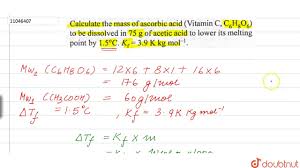 11046407
Calculate the mass of ascorbic acid (Vitamin C, C₆H₈O₆)
to be dissolved in 75 g of acetic acid to lower its melting
point by 1.5°C. Kf = 3.9 K kg mol⁻¹.
Mw₂ (C₆H₈O₆) = 12×6 + 8×1 + 16×6
= 176 g/mol
Mw₁ (CH₃COOH) = 60 g/mol
ΔTf = 1.5°C , Kf = 3.9 K kg mol⁻¹
ΔTf = Kf × m
doubtnut